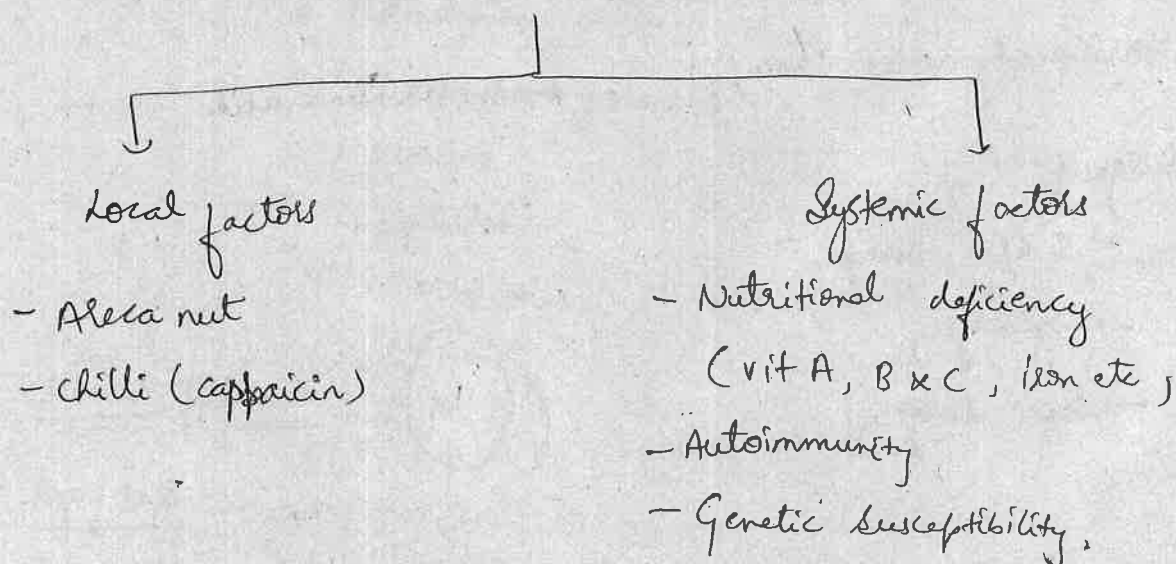 Local factors
- Areca nut
- Chilli (cappaicin)
Systemic factors
- Nutritional deficiency
(vit A, B & C, iron etc,
- Autoimmunity
- Genetic susceptibility.